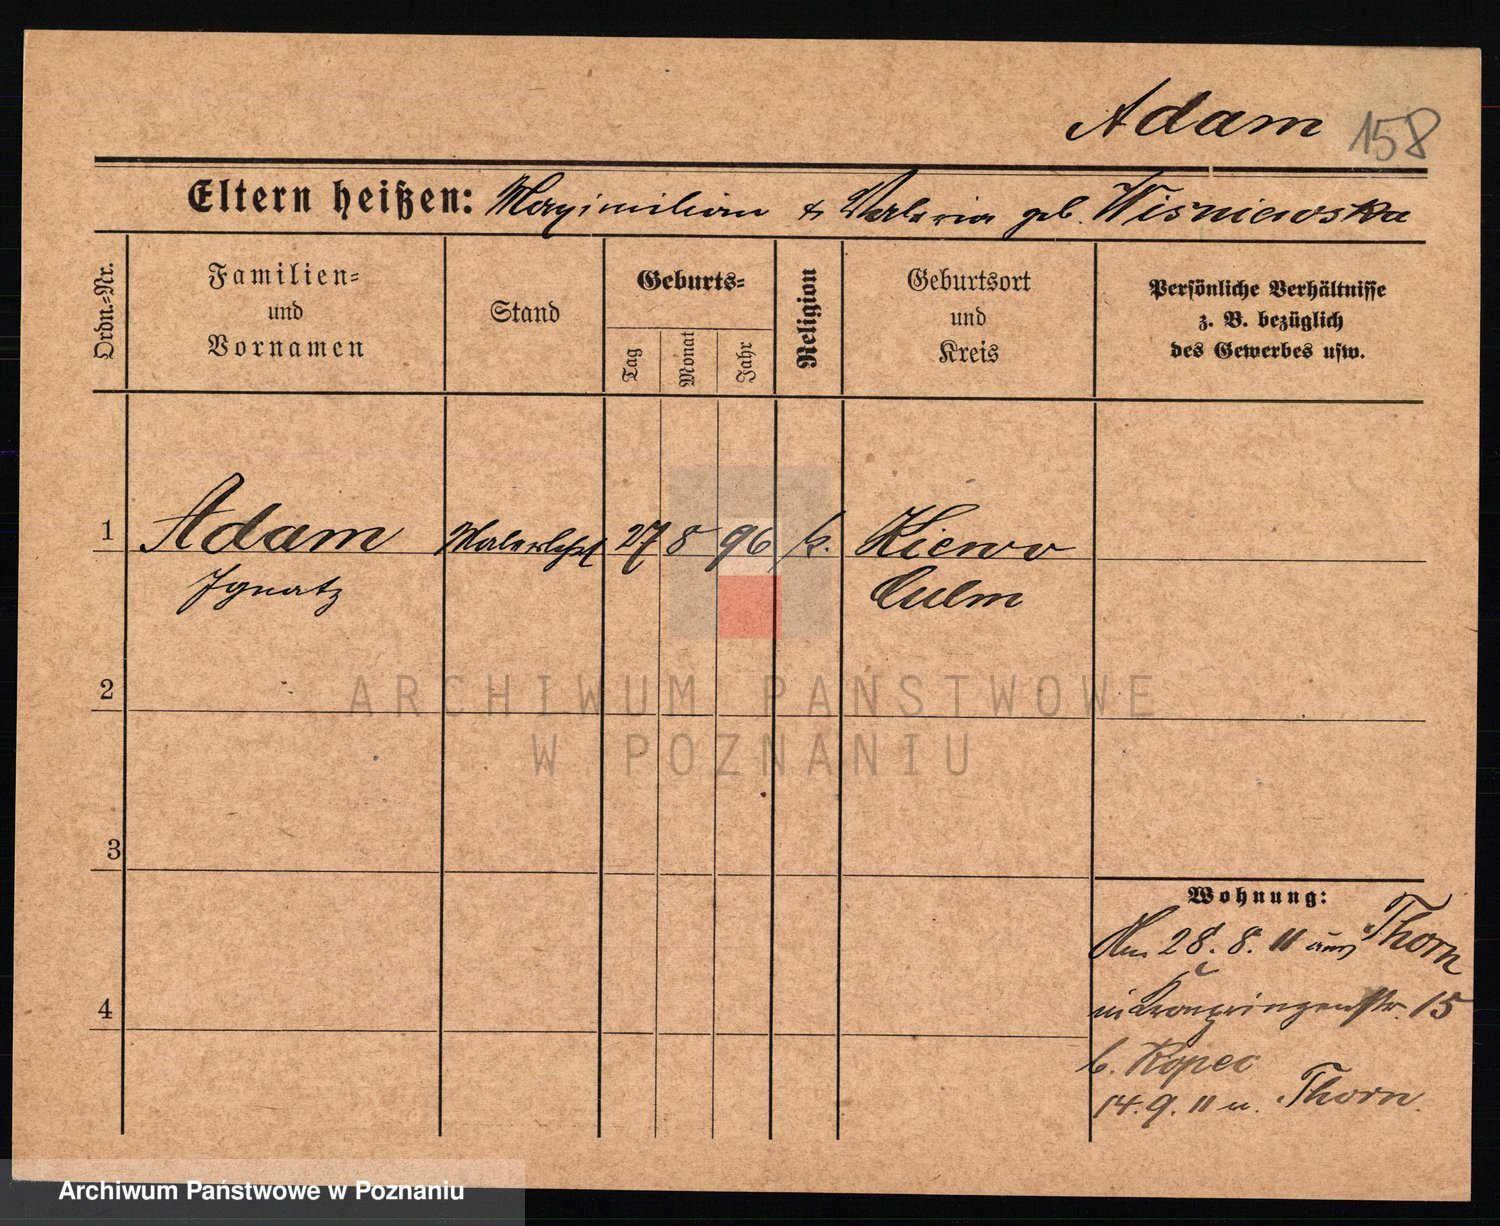 Adam 158
Eltern heißen: Maximilian & Valeria geb. Wiśniewska
Ordn.-Nr.
Familien-
und
Vornamen
Stand
Geburts-
Tag
Monat
Jahr
Religion
Geburtsort
und
Kreis
Persönliche Verhältnisse
z. B. bezüglich
des Gewerbes usw.
1 Adam Malerlehrl 27 8 96 k. Kiewo
Ignatz Culm
2
ARCHIWUM PAŃSTWOWE
W POZNANIU
3
Wohnung:
Am 28. 8. 11 aus Thorn
4
in Kronprinzenstr. 15
b. Kopec
14. 9. 11 n. Thorn.
Archiwum Państwowe w Poznaniu